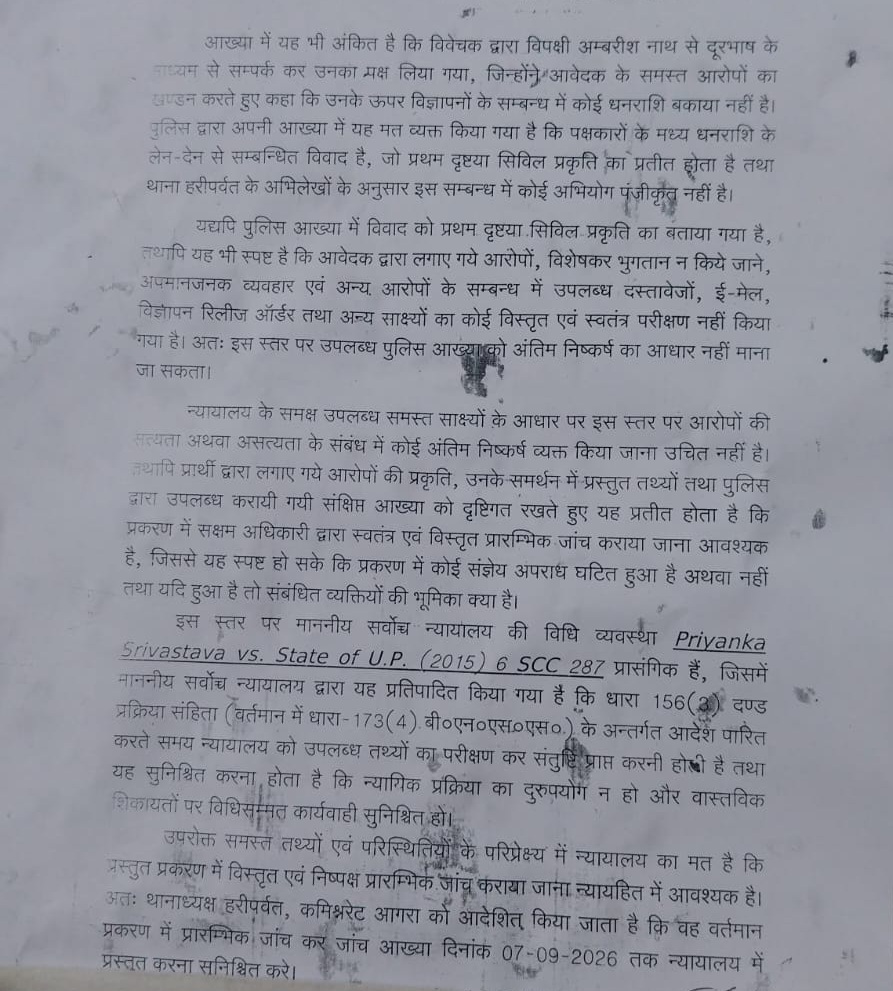 आख्या में यह भी अंकित है कि विवेचक द्वारा विपक्षी अम्बरीश नाथ से दूरभाष के
माध्यम से सम्पर्क कर उनका पक्ष लिया गया, जिन्होंने आवेदक के समस्त आरोपों का
खण्डन करते हुए कहा कि उनके ऊपर विज्ञापनों के सम्बन्ध में कोई धनराशि बकाया नहीं है।
पुलिस द्वारा अपनी आख्या में यह मत व्यक्त किया गया है कि पक्षकारों के मध्य धनराशि के
लेन-देन से सम्बन्धित विवाद है, जो प्रथम दृष्टया सिविल प्रकृति का प्रतीत होता है तथा
थाना हरीपर्वत के अभिलेखों के अनुसार इस सम्बन्ध में कोई अभियोग पंजीकृत नहीं है।
यद्यपि पुलिस आख्या में विवाद को प्रथम दृष्टया सिविल प्रकृति का बताया गया है,
तथापि यह भी स्पष्ट है कि आवेदक द्वारा लगाए गये आरोपों, विशेषकर भुगतान न किये जाने,
अपमानजनक व्यवहार एवं अन्य आरोपों के सम्बन्ध में उपलब्ध दस्तावेजों, ई-मेल,
विज्ञापन रिलीज ऑर्डर तथा अन्य साक्ष्यों का कोई विस्तृत एवं स्वतंत्र परीक्षण नहीं किया
गया है। अतः इस स्तर पर उपलब्ध पुलिस आख्या को अंतिम निष्कर्ष का आधार नहीं माना
जा सकता।
न्यायालय के समक्ष उपलब्ध समस्त साक्ष्यों के आधार पर इस स्तर पर आरोपों की
सत्यता अथवा असत्यता के संबंध में कोई अंतिम निष्कर्ष व्यक्त किया जाना उचित नहीं है।
तथापि प्रार्थी द्वारा लगाए गये आरोपों की प्रकृति, उनके समर्थन में प्रस्तुत तथ्यों तथा पुलिस
द्वारा उपलब्ध करायी गयी संक्षिप्त आख्या को दृष्टिगत रखते हुए यह प्रतीत होता है कि
प्रकरण में सक्षम अधिकारी द्वारा स्वतंत्र एवं विस्तृत प्रारम्भिक जांच कराया जाना आवश्यक
है, जिससे यह स्पष्ट हो सके कि प्रकरण में कोई संज्ञेय अपराध घटित हुआ है अथवा नहीं
तथा यदि हुआ है तो संबंधित व्यक्तियों की भूमिका क्या है।
इस स्तर पर माननीय सर्वोच्च न्यायालय की विधि व्यवस्था Priyanka
Srivastava vs. State of U.P. (2015) 6 SCC 287 प्रासंगिक हैं, जिसमें
माननीय सर्वोच्च न्यायालय द्वारा यह प्रतिपादित किया गया है कि धारा 156(3) दण्ड
प्रक्रिया संहिता (वर्तमान में धारा-173(4) बी०एन०एस०एस०) के अन्तर्गत आदेश पारित
करते समय न्यायालय को उपलब्ध तथ्यों का परीक्षण कर संतुष्टि प्राप्त करनी होती है तथा
यह सुनिश्चित करना होता है कि न्यायिक प्रक्रिया का दुरुपयोग न हो और वास्तविक
शिकायतों पर विधिसम्मत कार्यवाही सुनिश्चित हो।
उपरोक्त समस्त तथ्यों एवं परिस्थितियों के परिप्रेक्ष्य में न्यायालय का मत है कि
प्रस्तुत प्रकरण में विस्तृत एवं निष्पक्ष प्रारम्भिक जांच कराया जाना न्यायहित में आवश्यक है।
अतः थानाध्यक्ष हरीपर्वत, कमिश्नरेट आगरा को आदेशित् किया जाता है कि वह वर्तमान
प्रकरण में प्रारम्भिक जांच कर जांच आख्या दिनांक 07-09-2026 तक न्यायालय में
प्रस्तुत करना सुनिश्चित करे।